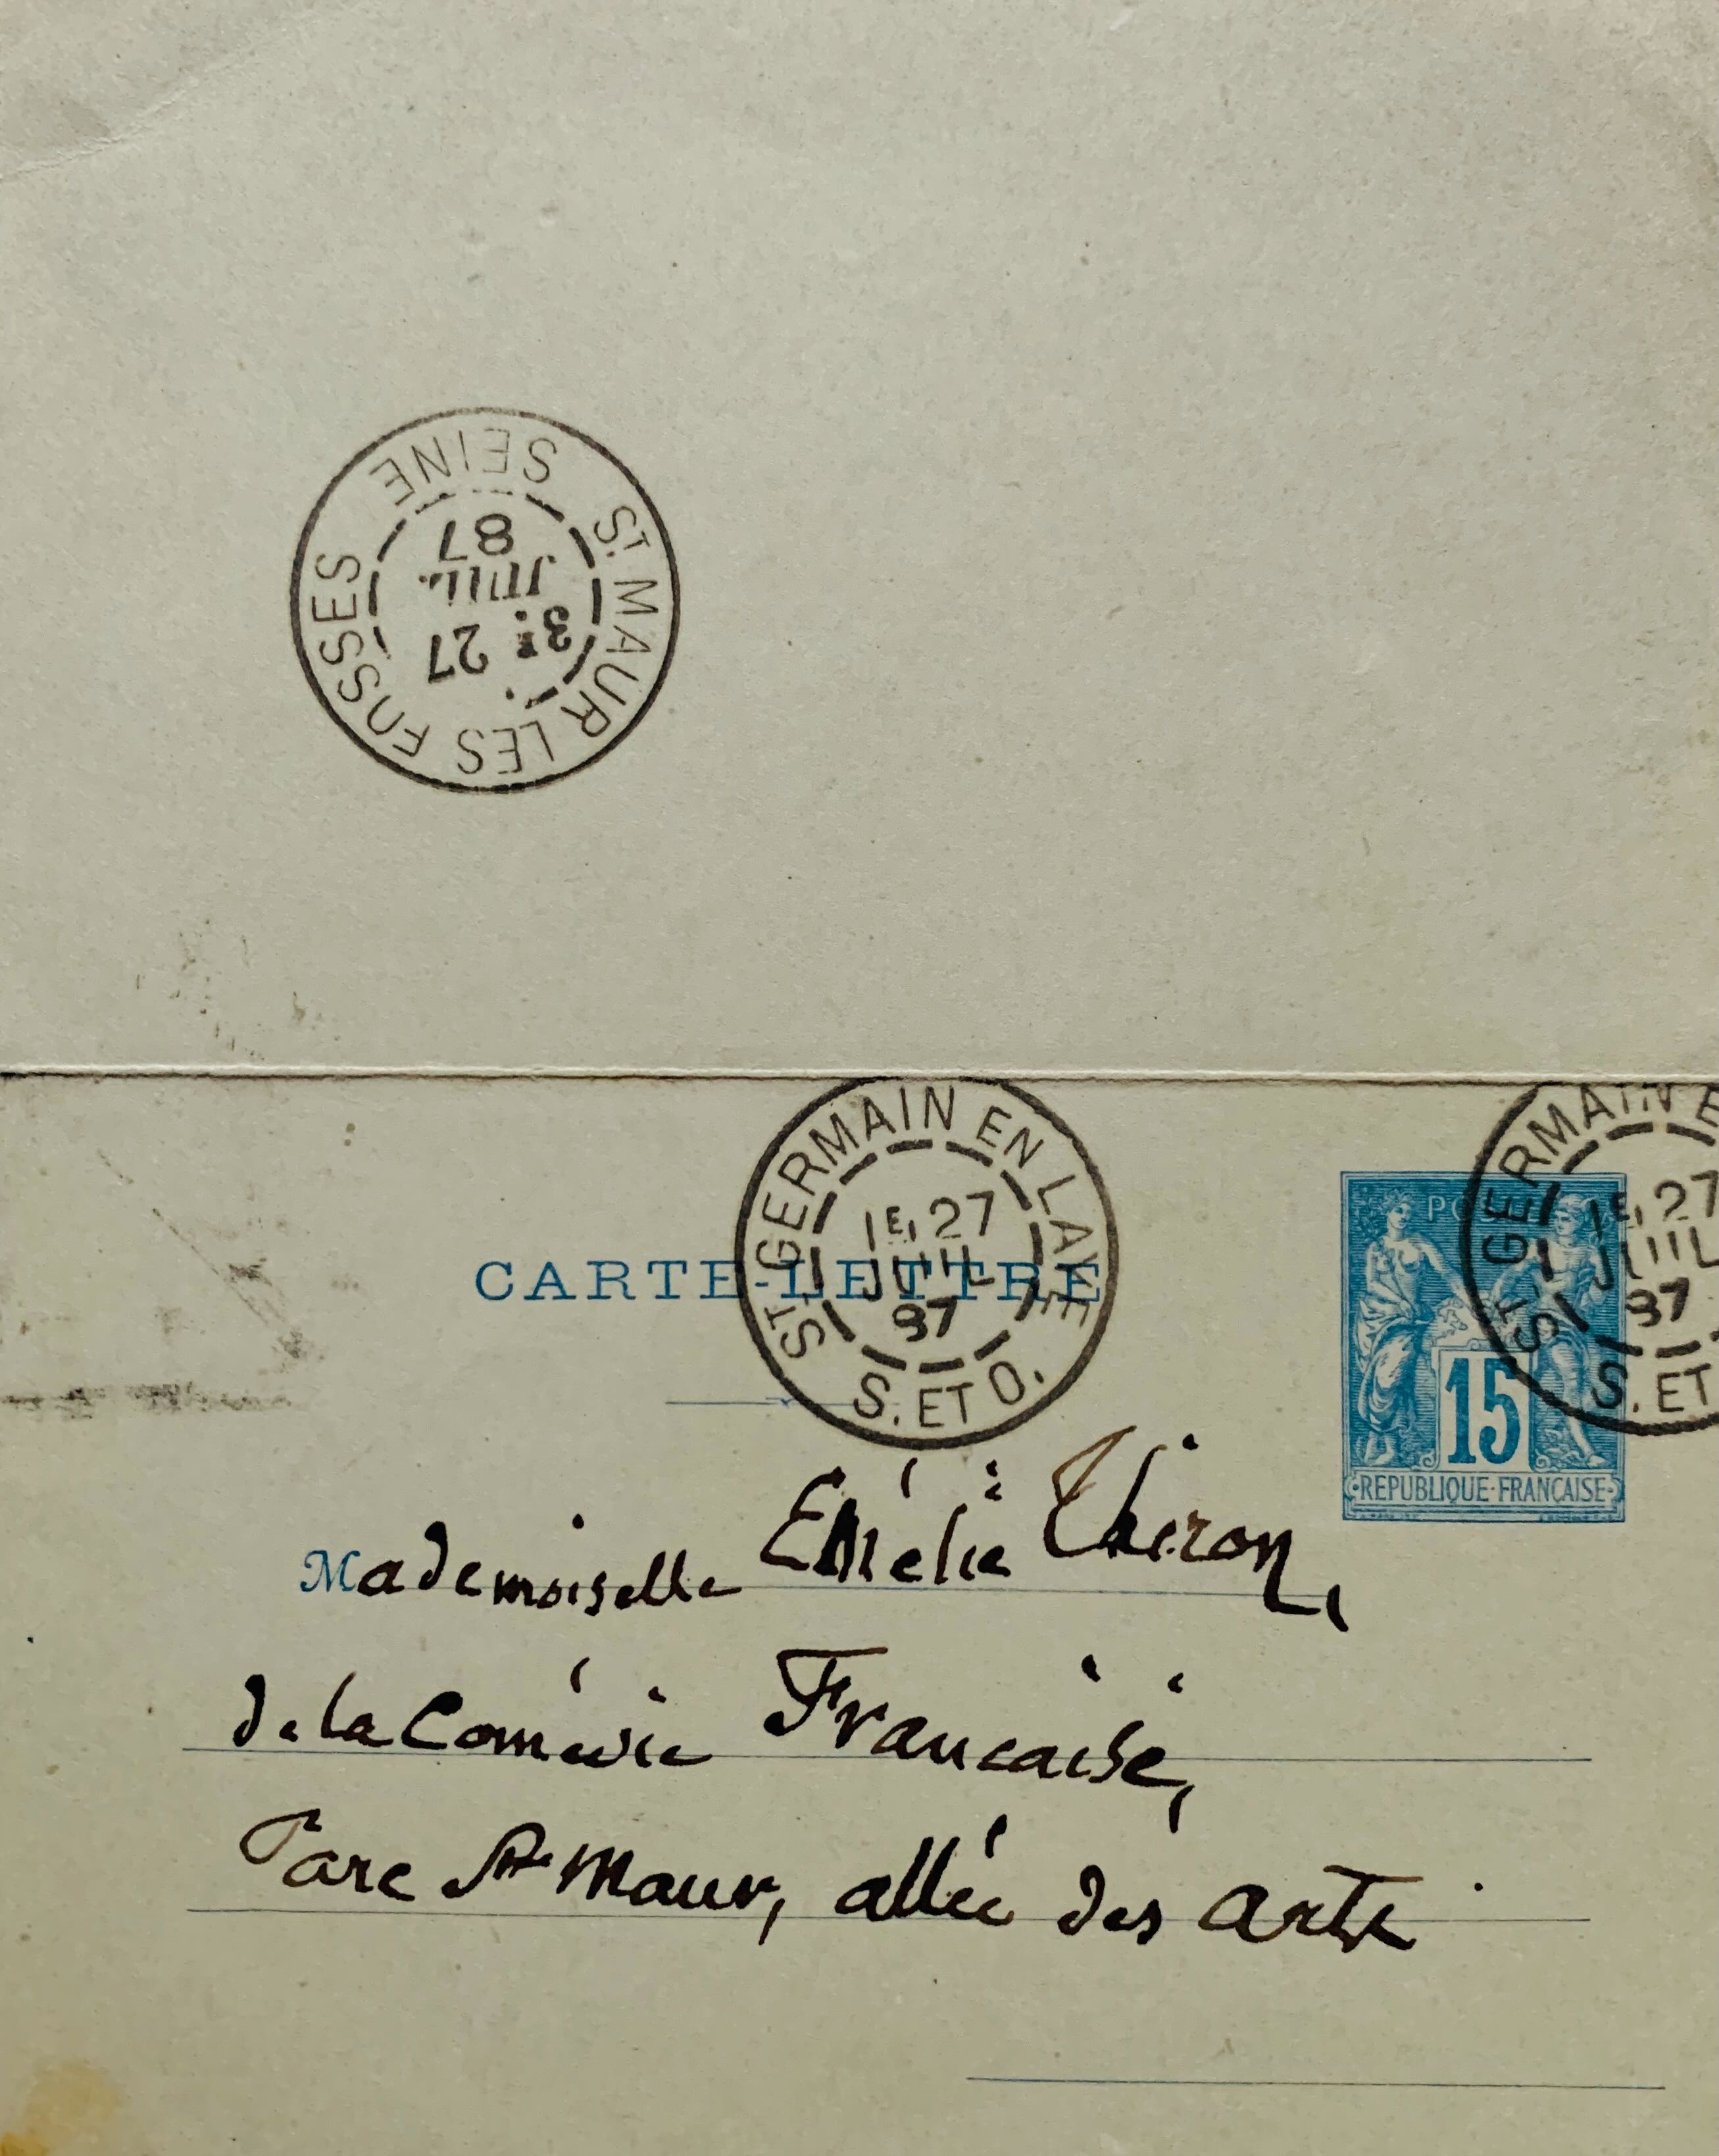 ST MAUR LES FOSSES
3E 27
JUIL.
87
SEINE
ST GERMAIN EN LAYE
1E 27
JUIL
87
S. ET O.
ST GERMAIN E
1E 27
JUIL
87
S. ET
CARTE-LETTRE
15
REPUBLIQUE·FRANÇAISE
Mademoiselle Emélie Thiron,
de la Comédie Française,
Parc St Maur, allée des arts